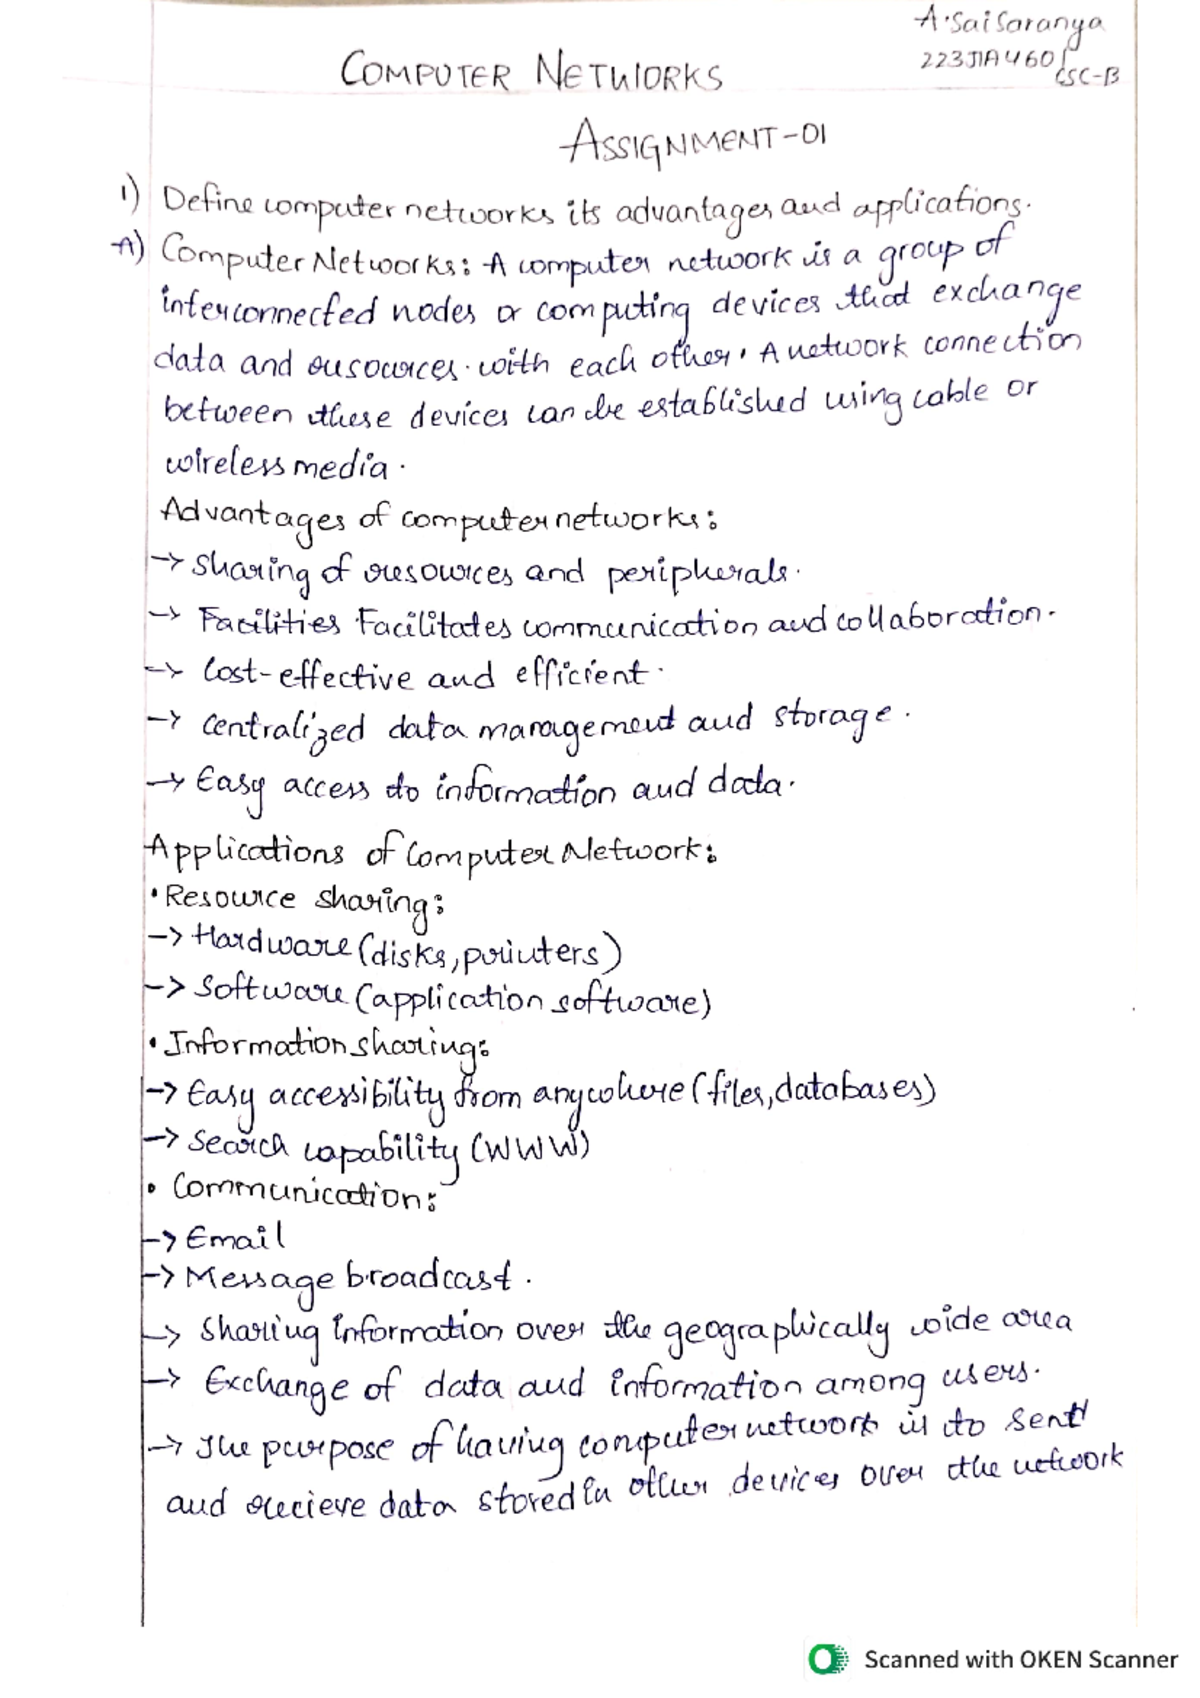 A.Sai Saranya
223J1A4601
CSC-B
COMPUTER NETWORKS
ASSIGNMENT-01
1) Define computer networks its advantages and applications.
A) Computer Networks: A computer network is a group of
interconnected nodes or computing devices that exchange
data and resources with each other. A network connection
between these devices can be established using cable or
wireless media.
Advantages of computer networks:
-> Sharing of resources and peripherals.
-> Facilities Facilitates communication and collaboration.
-> Cost-effective and efficient.
-> Centralized data management and storage.
-> Easy access to information and data.
Applications of Computer Network:
• Resource sharing:
-> Hardware (disks, printers)
-> Software (application software)
• Information sharing:
-> Easy accessibility from anywhere (files, databases)
-> Search capability (WWW)
• Communication:
-> Email
-> Message broadcast.
-> Sharing information over the geographically wide area
-> Exchange of data and information among users.
-> The purpose of having computer network is to sent
and recieve data stored in other devices over the network
Scanned with OKEN Scanner